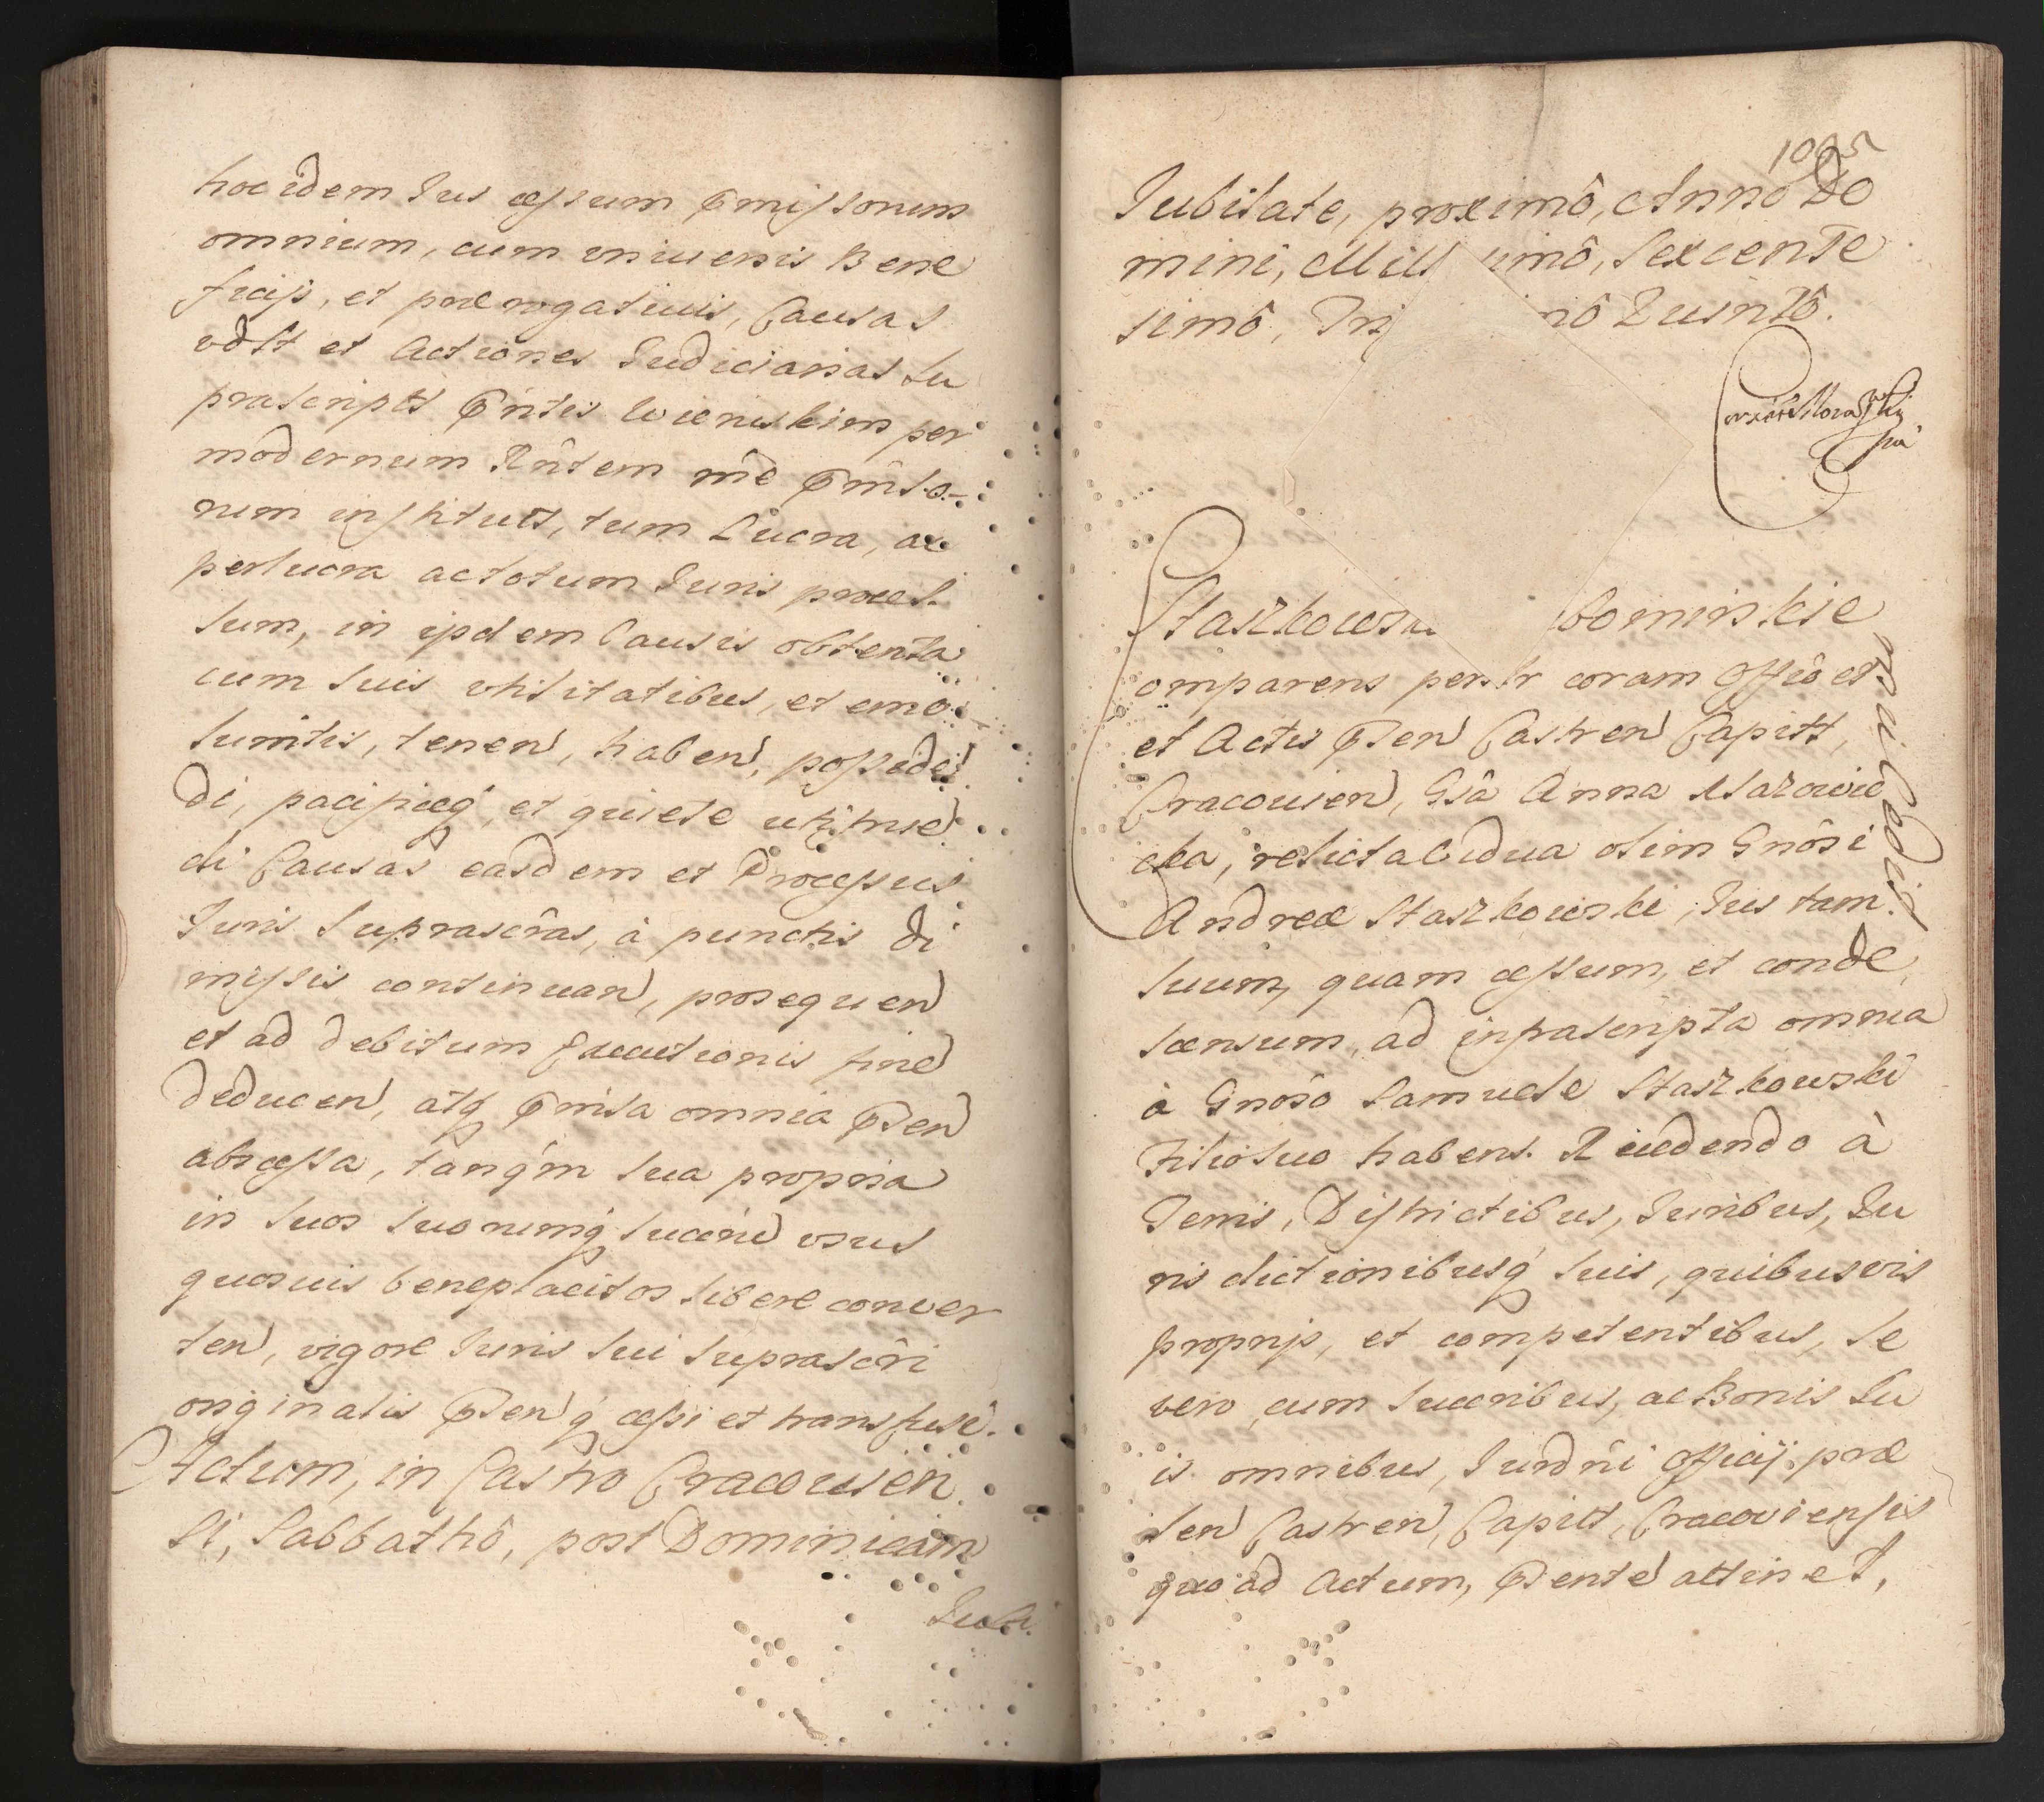 hoc idem Ius cessum pmissorum
omnium, cum vniuersis Bene
ficijs, et prærogatiuis, Causas
vdłt et Actiones Iudiciarias su
prascripts
modernum
num instituts, tum Lucra, ac
perlucra ac totum Iuris proces
sum, in ijsdem Causis obtenta
cum suis vtilitatibus, et emo
lumtis, tenen, haben, posside
di, pacificeq, et quiete
di Causas easdem et Processus
Iuris suprascrãs, à punctis di
missis continuan, prosequen
et ad debitum Executionis fine
deducen, atq pmissa omnia pnten
abscessa, tanqm sua propria
in suos suorumq succnu usus
quosuis beneplacitos libere conuer
ten, vigore Iuris sui suprascri
originalis pnten q cessi et transfusi.
Actum, in Castro Cracouien
si, Sabbathô, post Dominicam
Iubi.
1095
Iubilate, proximô, Annô Do
mini, Mill imô, Sexcente
simô, Tri nô Quintô.
Staszkows bominskie
Comparens persr coram Offiô et
et Actis pnten Castren Capitt,
Cracouien, Gsâ Anna Mazowie
cka, relicta Vidua olim Gnôsi
Andreæ Staszkowski, Ius tam
suum, quam cessum, et conde
scensum, ad infrascripta omnia
à Gnôso Samuele Staszkowski
Filio suo habens. Recedendo à
Terris, Districtibus, Iuribus, Iu
risdictionibusq suis, quibusvis
proprijs, et competentibus, se
vero, cum succribus, ac Bonis su
is omnibus, Iurdni Officij præ
sen Castren, Capitt, Cracoviensis
quo ad Actum, pnten attinet,